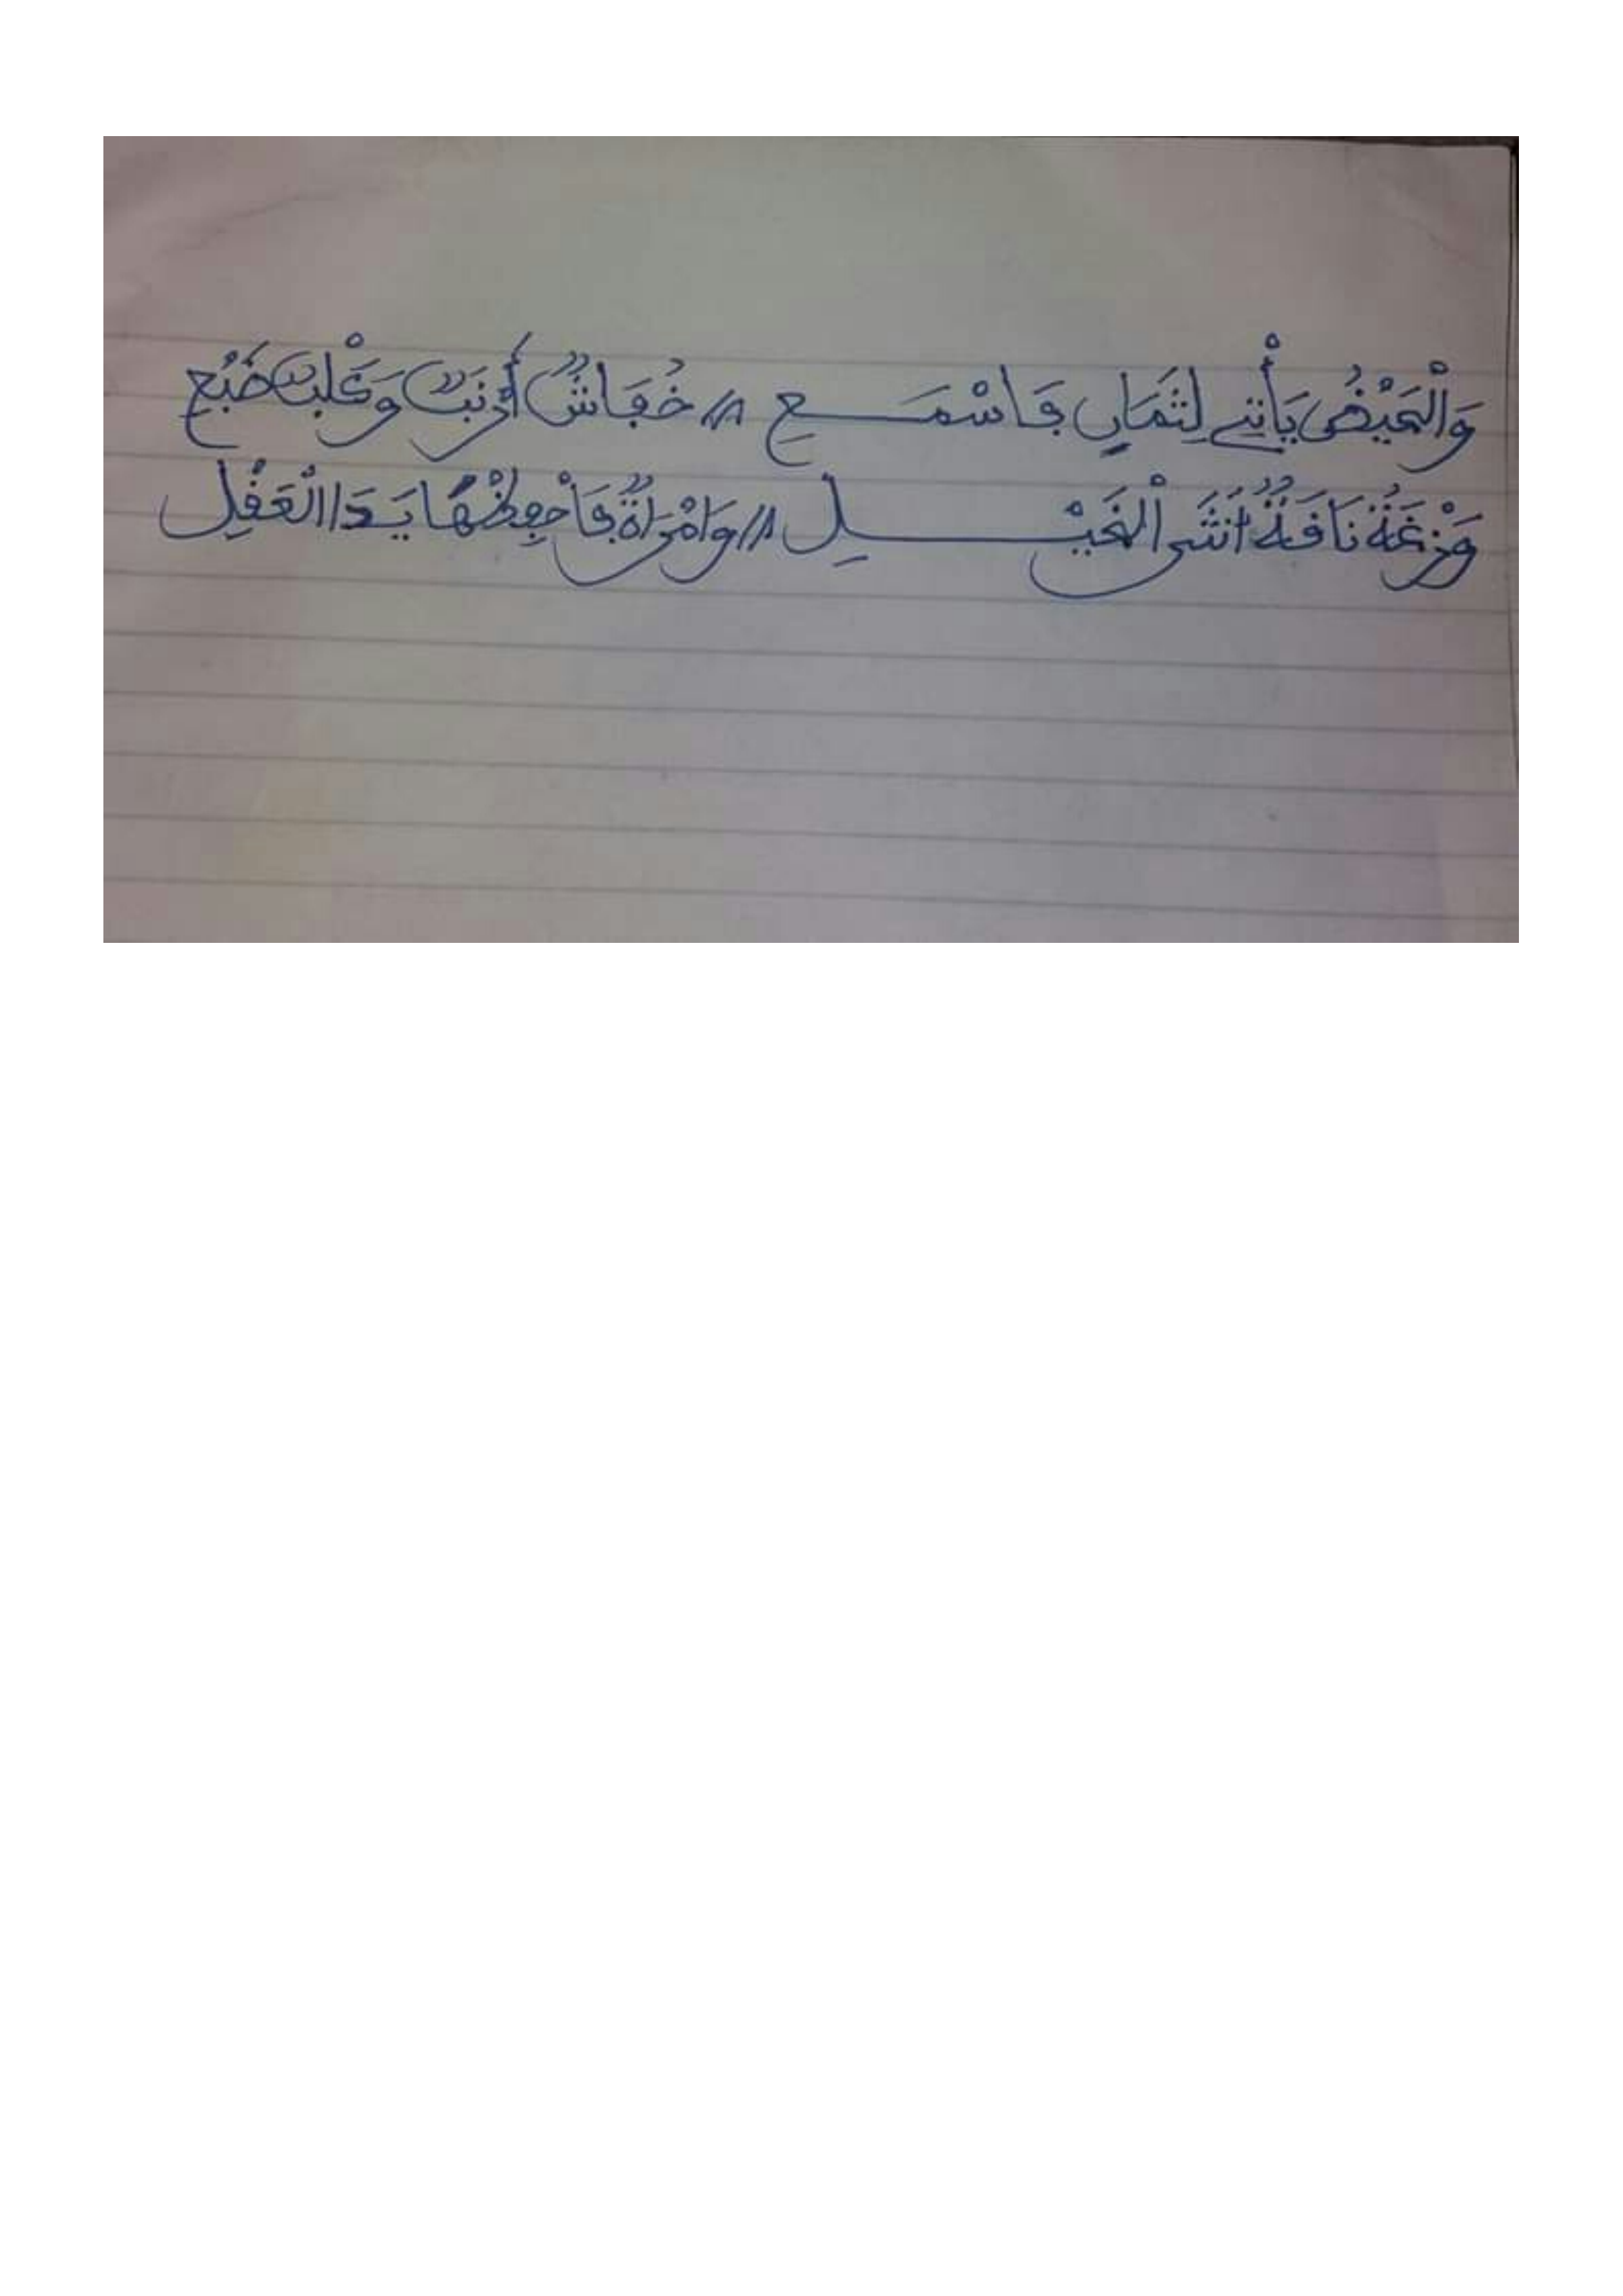 وَالْحَيْضُ يَأْتِي لِثَمَانٍ فَاسْمَـــــعِ // خُفَاشٌ أَرْنَبٌ وَكَلْبَةٌ ضَبُعِ
وَزْغَةٌ نَاقَةٌ اُنْثَى الْخَيْـــــلِ // وَامْرَاةٌ فَاحْفِظْهَا يَـذَا الْعَقْلِ